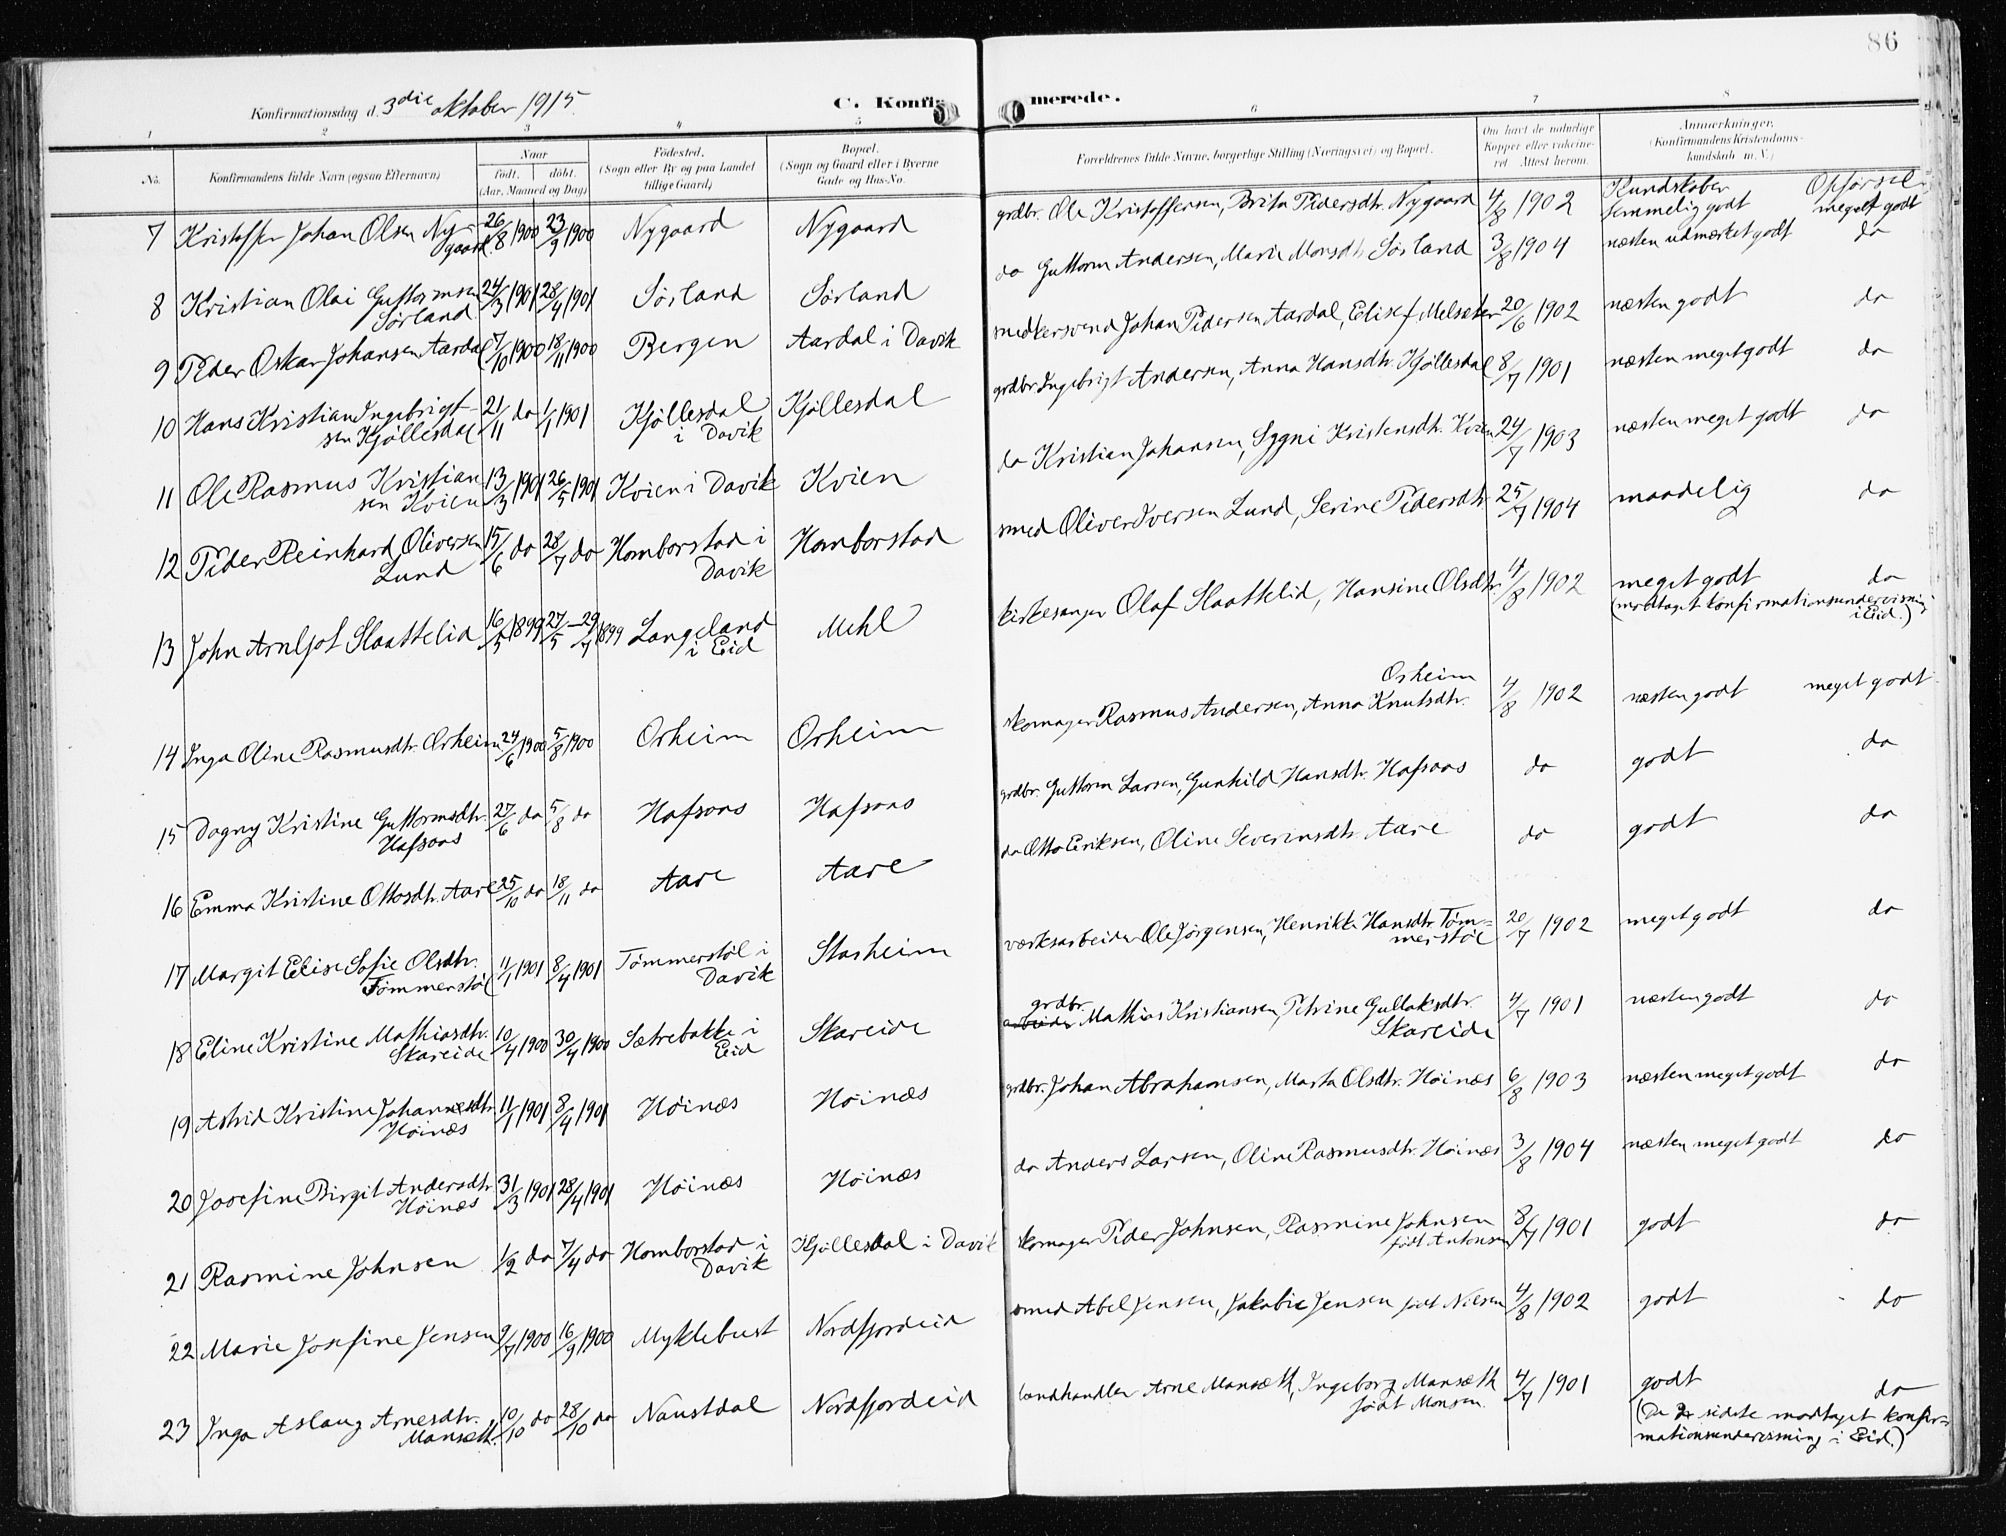 86
Konfirmationsdag d. 3die oktober 1915.
C. Konfirmerede.
1 2 3 4 5 6 7 8
No. Konfirmandens fulde Navn (ogsaa Efternavn) Naar født. døbt. (Aar, Maaned og Dag) Fødested. (Sogn eller By og paa Landet tillige Gaard) Bopæl. (Sogn og Gaard eller i Byerne Gade og Hus-No. Forældrenes fulde Navne, borgerlige Stilling (Næringsvei) og Bopæl. Om havt de naturlige Kopper eller vakcineret. Attest herom. Anmærkninger. (Konfirmandens Kristendomskundskab m. V.)
Kundskaber Opførsel
7 Kristoffer Johan Olsen Nygaard 26/8 1900 23/9 1900 Nygaard Nygaard grdbr. Ole Kristoffersen, Brita Pedersdtr. Nygaard 4/8 1902 temmelig godt meget godt
8 Kristian Olai Guttormsen Sørland 24/3 1901 28/4 1901 Sørland Sørland do Guttorm Andersen, Marie Monsdtr Sørland 3/8 1904 næsten udmerket godt do
9 Peder Oskar Johansen Aardal 7/10 1900 18/11 1900 Bergen Aardal i Davik smedkersvend Johan Pedersen Aardal, Elisef Melsæter 20/6 1902 næsten godt do
10 Hans Kristian Ingebrigtsen Kjøllesdal 21/11 do 1/1 1901 Kjøllesdal i Davik Kjøllesdal grdbr Ingebrigt Andersen, Anna Hansdtr. Kjøllesdal 8/7 1901 næsten meget godt do
11 Ole Rasmus Kristiansen Kvien 13/3 1901 26/5 1901 Kvien i Davik Kvien do Kristian Johansen, Sygni Kristensdtr. Kvien 24/7 1903 næsten meget godt do
12 Peder Reinhard Oliversen Lund 15/6 do 28/7 do Homborstad i Davik Homborstad smed Oliver Iversen Lund, Serine Pedersdtr. 25/7 1904 maadelig do
13 John Arnljot Slaattelid 16/5 1899 27/5 - 29/7 1899 Langeland i Eid Mehl kirkesanger Olaf Slaattelid, Hansine Olsdtr. 4/8 1902 meget godt do
(modtaget konfirmationsundervisning i Eid.)
14 Inga Oline Rasmusdtr. Orheim 24/6 1900 5/8 1900 Orheim Orheim skomager Rasmus Andersen, Anna Knutsdtr. Orheim 4/8 1902 næsten godt meget godt
15 Dagny Kristine Guttormsdtr. Hafsaas 27/6 do 5/8 do Hafsaas Hafsaas grdbr. Guttorm Larsen, Gunhild Hansdtr. Hafsaas do godt do
16 Emma Kristine Ottosdtr. Aare 25/10 do 18/11 do Aare Aare do Otto Eriksen, Oline Severinsdtr. Aare do godt do
17 Margit Elise Sofie Olsdtr. Tømmerstøl 11/1 1901 8/4 1901 Tømmerstøl i Davik Starheim værksarbeider Ole Jørgensen, Henrikke Hansdtr. Tømmerstøl 20/7 1902 meget godt do
18 Eline Kristine Mathiasdtr. Skareide 10/4 1900 30/4 1900 Sætrebakke i Eid Skareide grdbr. arbeider Mathias Kristiansen, Petrine Gullaksdtr. Skareide 4/7 1901 næsten godt do
19 Astrid Kristine Johannesdtr. Høinæs 11/1 1901 8/4 1901 Høinæs Høinæs grdbr. Johan Abrahamsen, Marta Olsdtr. Høinæs 6/8 1903 næsten meget godt do
20 Josefine Birgit Andersdtr. Høinæs 31/3 1901 28/4 1901 Høinæs Høinæs do Anders Larsen, Oline Rasmusdtr. Høinæs 3/8 1904 næsten meget godt do
21 Rasmine Johnsen 1/2 do 7/4 do Homborstad i Davik Kjøllesdal i Davik skomager Peder Johnsen, Rasmine Johnsen født Antonsen 8/7 1901 godt do
22 Marie Josefine Jensen 9/7 1900 16/9 1900 Myklebust Nordfjordeid smed Abel Jensen, Jakobie Jensen født Nilsen 4/8 1902 godt do
23 Inga Aslaug Arnesdtr. Mansæth 10/10 do 28/10 do Naustdal Nordfjordeid landhandler Arne Mansæth, Ingeborg Mansæth født Monsen. 4/7 1901 godt do
(De 2 sidste modtaget konfirmationsundervisning i Eid.)